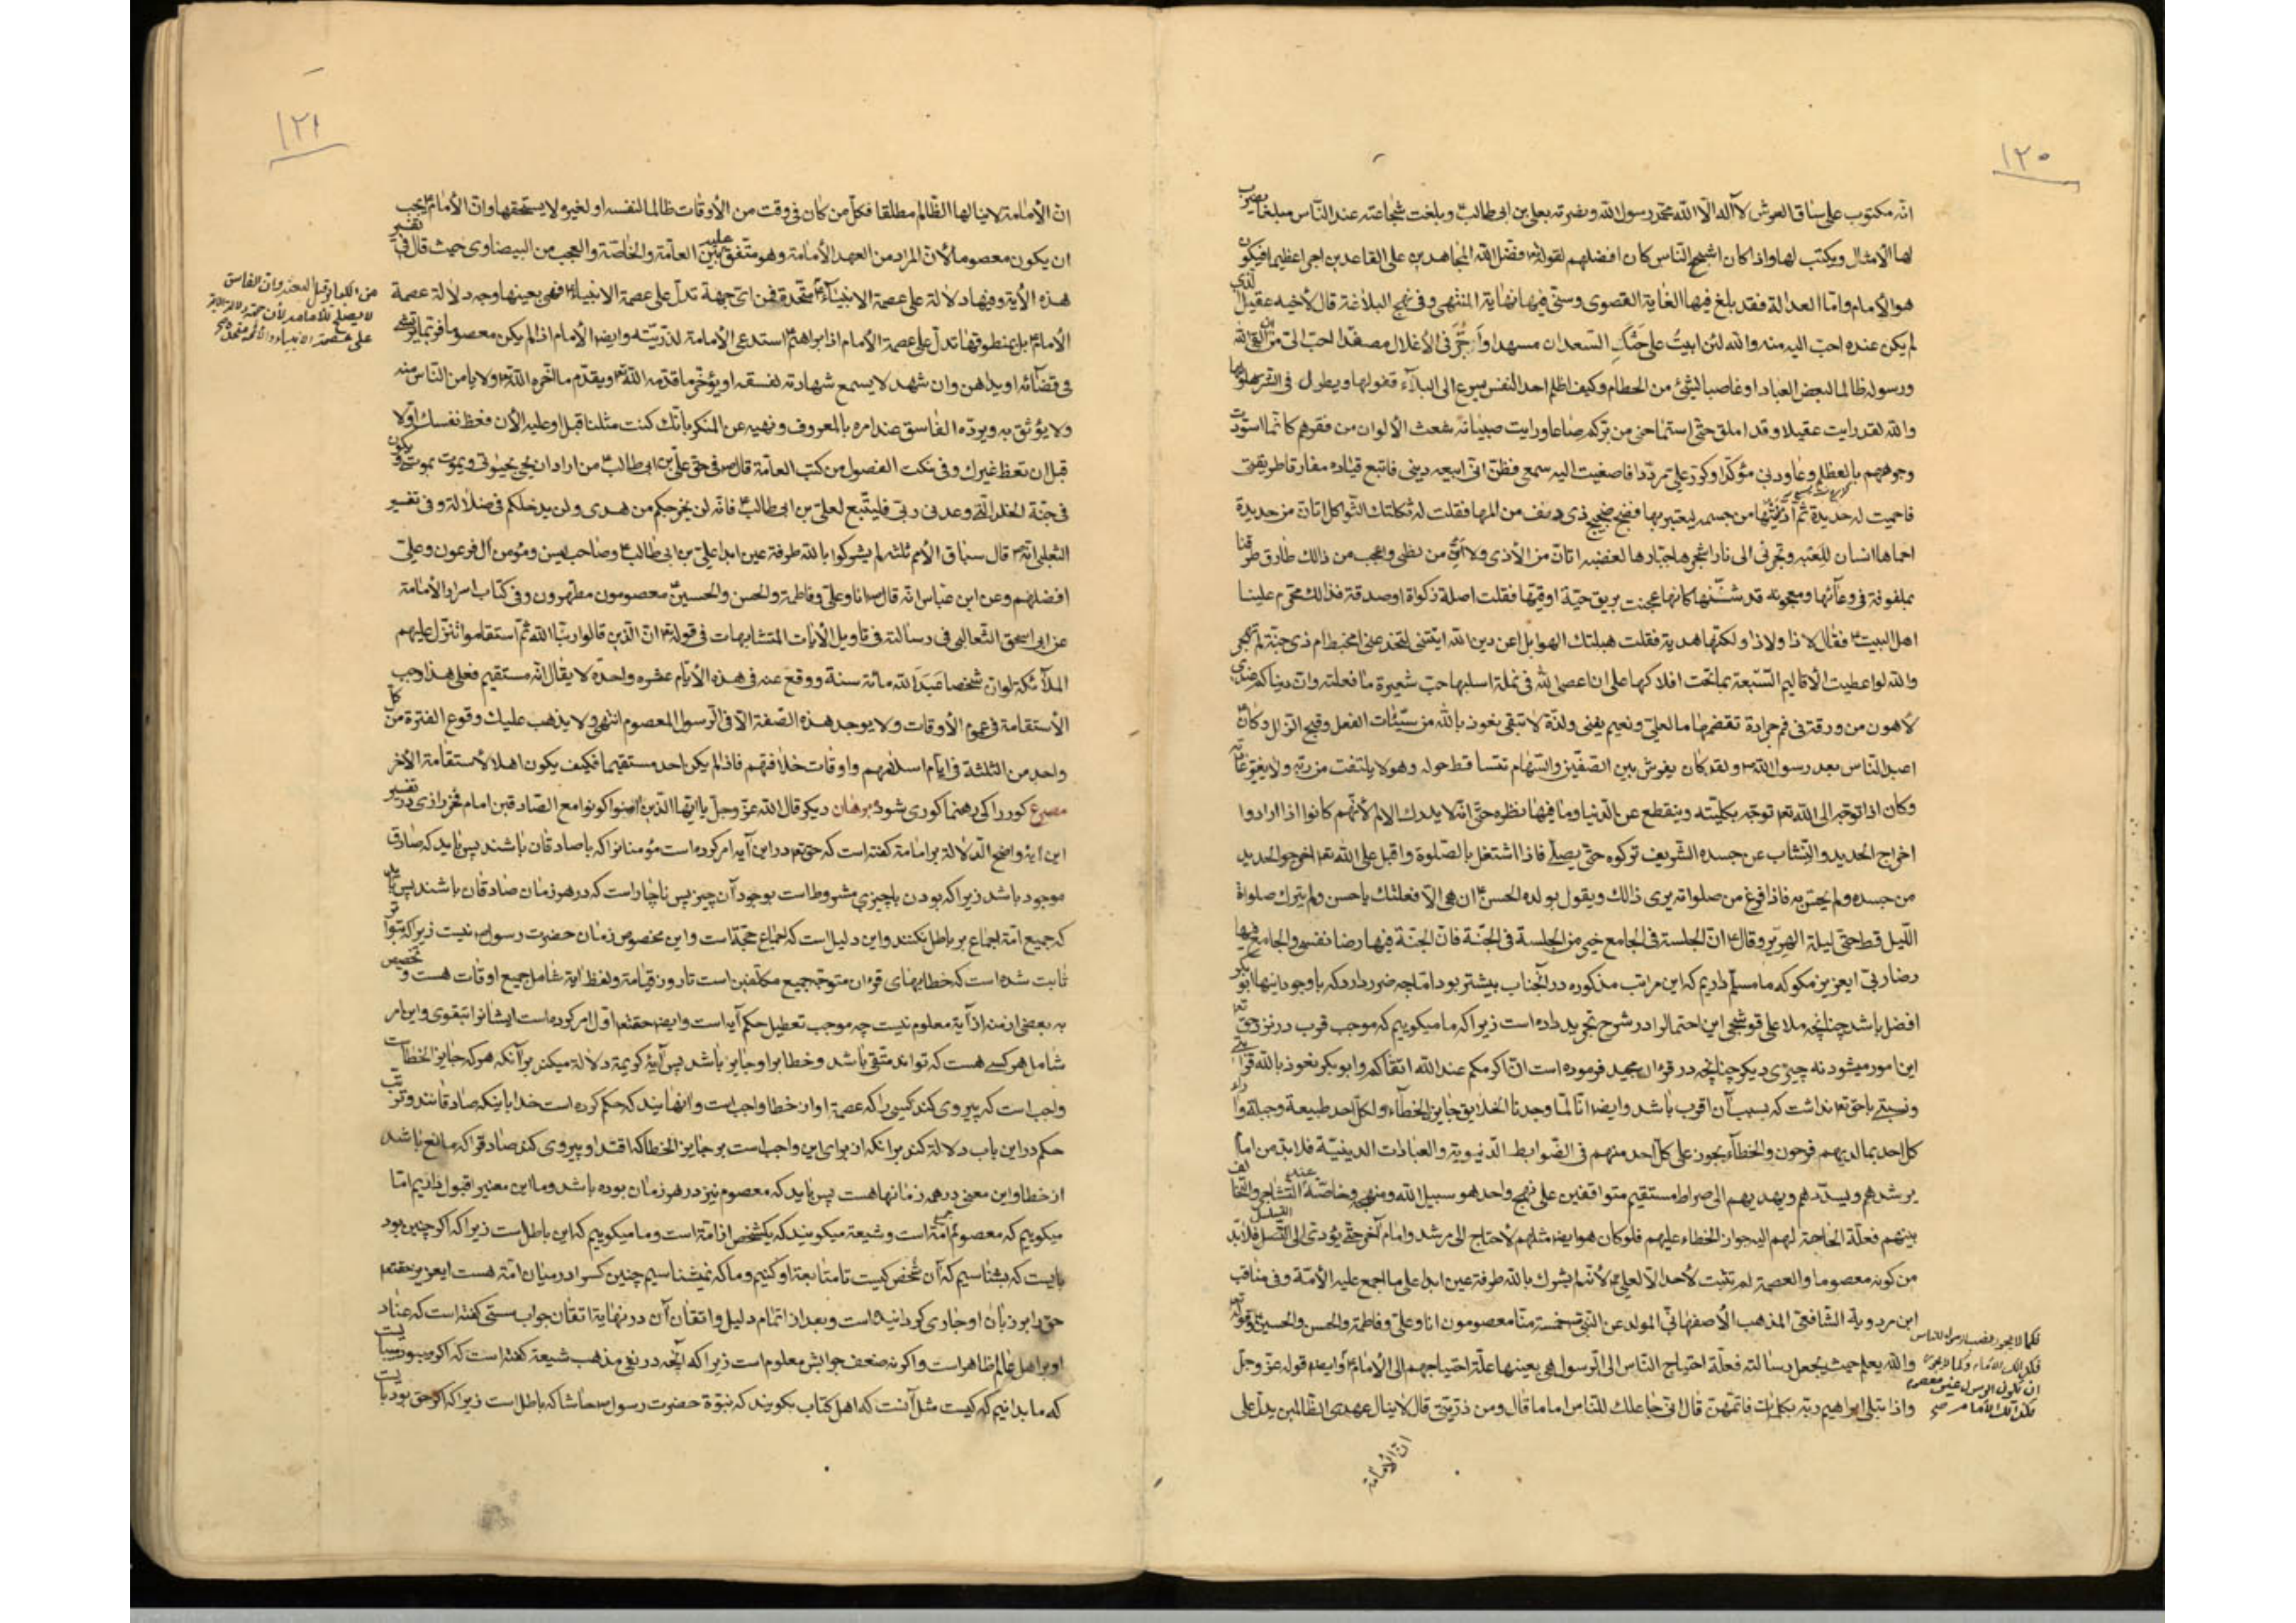 ١٢٠
انّه مكتوب على ساق العرش لا اله الّا الله محمّد رسول الله ونصرته بعلى بن ابى طالب و بلغت شجاعته عند النّاس مبلغا يضرب
لها الأمثال ويكتب لها واذا كان اشجع النّاس كان افضلهم لقوله فضّل الله المجاهدين على القاعدين اجرا عظيما فيكون
هو الأمام وامّا العدالة فقد بلغ فيها الغاية القصوى وسعى فيها نهاية المنتهى وفى نهج البلاغة قال لأخيه عقيل الذى
لم يكن عنده احبّ اليه منه والله لئن ابيتُ على حَسَكِ السّعدان مسهدا وأُجَرَّ فى الأغلال مصفّدا احبّ الىّ من ان القى الله
ورسوله ظالما لبعض العباد او غاصبا لشئ من الحطام وكيف اظلم احدا لنفس يسرع الى البلآء قفولها ويطول فى الثرى حلولها
والله لقد رايت عقيلا وقد املق حتّى استماحنى من برّكم صاعا ورايت صبيانه شعث الألوان من فقرهم كانّما اسودّت
وجوههم بالعظلم وعاودنى مؤكّدا وكرّر علىّ مردّدا فاصغيت اليه سمعى فظنّ انّى ابيعه دينى فاتبع قياده مفارقا طريقتى
فاحميت له حديدة ثمّ ادنيتها من جسمه ليعتبر بها فضجّ ضجيج ذى دنف من المها فقلت له ثكلتك الثّواكل اتانّ من حديدة
احماها انسان للعبه وتجرّنى الى نار اشجرها جبّارها لغضبه اتانّ من الأذى ولا أئنّ من لظى واعجب من ذالك طارق طرقنا
بملفوفة فى وعآئها ومعجونة قد شنئتها كانّها عجنت بريق حيّة او قيئها فقلت اصلة ام زكواة او صدقة فذالك محرّم علينا
اهل البيت فقال لا ذا ولا ذا ولكنّها هديّة فقلت هبلتك الهوابل اعن دين الله اتيتنى لتخدعنى امختبط ام ذى جنّة ام تهجر
والله لو اعطيت الأقاليم السّبعة بما تحت افلاكها على ان اعصى الله فى نملة اسلبها حبّ شعيرة ما فعلته وانّ دنياكم عندى
لأهون من ورقة فى فم جرادة تقضمها ما لعلىّ ونعيم يفنى ولذّة لا تبقى نعوذ بالله من سيّئات الفعل وقبح الزّلل وكان
اعبد النّاس بعد رسول الله ولقد كان يفرش بين الصّفّين والسّهام تساقط حوله وهو لا يلتفت من ربّه ولا يغيّر عادته
وكان اذا توجّه الى الله توجّه بكليّته وينقطع عن الدّنيا وما فيها نظره حتّى انّه لا يدرك الالم لأنّهم كانوا اذا ارادوا
اخراج الحديد والنّشاب عن جسده الشّريف تركوه حتّى يصلّى فاذا اشتغل بالصّلوة واقبل على الله اخرجوا الحديد
من جسده ولم يحسّ به فاذا فرغ من صلواته يرى ذالك ويقول بولده الحسن ان هى الّا فعلتك يا حسن ولم يترك صلواة
اللّيل قط حتّى ليلة الهرير وقال انّ الجلسة فى الجامع خير من الجلسة فى الجنّة فانّ الجنّة فيها رضا نفسى والجامع فيها
رضا ربّى ايعزيز مگو كه ما مسلّم داريم كه اين مراتب مذكوره در آنجناب بيشتر بود امّا چه ضرر دارد كه با وجود اينها ابوبكر
افضل باشد چنانچه ملا على قوشجى اين احتمال را در شرح تجريد داده است زيرا كه ما ميگوييم كه موجب قرب در نزد حق
اين امور ميشود نه چيزى ديگر چنانچه در قرءان مجيد فرموده است انّ اكرمكم عند الله اتقاكم و ابوبكر نعوذ بالله قرابتى
ونسبتى با حق نداشت كه بسبب آن اقرب باشد وايضا انّا لمّا وجدنا الخلايق جايز الخطآء ولكلّ احد طبيعة وجبلة وآراء
كل احد بما لديهم فرحون والخطآء يجوز على كلّ احد منهم فى الضّوابط الدّنيوية والعبادات الدينيّة فلا بدّ من امام
يرشدهم ويسدّدهم ويهديهم الى صراط مستقيم متوافقين على نهج واحد هو سبيل الله ومنهجه وخاصّة عند التّشاجر والتّخالف
بينهم فعلّة الحاجة لهم اليه جواز الخطاء عليهم فلو كان هو ايضا مثلهم لأحتاج الى مرشد وامام آخر حتّى يؤدّى الى التّسلسل فلا بدّ
من كونه معصوما والعصمة لم تثبت لأحد الّا لعلىّ لأنّه لم يشرك بالله طرفة عين ابدا على ما اجمع عليه الأمّة وفى مناقب
ابن مردوية الشّافعىّ المذهب الأصفهانىّ المولد عن النّبى خمسة منّا معصومون انا وعلىّ وفاطمة والحسن والحسين وقوله
والله يعلم حيث يجعل رسالته فعلّة احتياج النّاس الى الرّسول هى بعينها علّة احتياجهم الى الأمام وايضا قوله عزّ وجلّ
واذ ابتلى ابراهيم ربّه بكلمات فاتمّهنّ قال انّى جاعلك للنّاس اماما قال ومن ذريّتى قال لا ينال عهدى الظّالمين يدلّ على
فكما لا يجوز نصب الرسول للناس
فكذالك الامام وكما لا يجوز
ان يكون الرسول غير معصوم
فكذالك الامام صح
انّ الأمامة
١٢١
انّ الأمامة لا ينالها الظّالم مطلقا فكلّ من كان فى وقت من الأوقات ظالما لنفسه او لغيره لا يستحقّها وانّ الأمام يجب
ان يكون معصوما لأنّ المراد من العهد الأمامة وهو متّفق عليه بين العامّة والخاصّة والعجب من البيضاوى حيث قال فى تفسير
هذه الأية وفيها دلالة على عصمة الانبيآء متّحدة فمن اىّ جهة تدلّ على عصمة الانبيآء فهى بعينها وجه دلالة عصمة
الأمام بل منطوقها تدلّ على عصمة الأمام اذ ابراهيم استدعى الأمامة لذرّيّته وايضا الأمام اذا لم يكن معصوما فربّما يرتشى
فى قضآئه او يداهن وان شهد لا يسمع شهادته لفسقه او يؤخّر ما قدّمه الله ويقدّم ما اخّره الله ولا يامن النّاس منه
ولا يؤثق به ويردّه الفاسق عند امره بالمعروف ونهيه عن المنكر بانّك كنت مثلنا قبل او عليه الأن فعظ نفسك اوّلا
قبل ان تعظ غيرك وفى نكت الفصول من كتب العامّة قال فى حقّ علىّ بن ابى طالب من اراد ان يحيى بحيوتى ويموت بموتى ويكون
فى جنّة الخلد الّتى وعدنى ربّى فليتّبع لعلىّ بن ابى طالب فانّه لن يخرجكم من هدى ولن يدخلكم فى ضلالة وفى تفسير
الثعلبى انّه قال سبّاق الأمم ثلثه لم يشركوا بالله طرفة عين ابدا علىّ بن ابى طالب وصاحب يس ومؤمن آل فرعون وعلىّ
افضلهم وعن ابن عبّاس انّه قال انا وعلىّ وفاطمة والحسن والحسين معصومون مطهّرون وفى كتاب اسرار الأمامة
عن ابى اسحق الثّعالبى فى رسالته فى تاويل الأيات المتشابهات فى قوله انّ الّذين قالوا ربّنا الله ثمّ استقاموا تتنزّل عليهم
الملآئكة لو انّ شخصا عَبَدَ الله مائة سنة ووقع عنه فى هذه الأيّام عشره واحدة لا يقال انّه مستقيم فعلى هذا وجب
الأستقامة فى عموم الأوقات ولا يوجد هذه الصّفة الّا فى الرّسول المعصوم انتهى ولا يذهب عليك وقوع الفترة من كلّ
واحد من الثلثة فى ايّام اسلامهم واوقات خلافتهم فاذا لم يكن احد مستقيما فكيف يكون اهلا لأستقامة الأخر
مصرع كور را كى رهنما كورى شود برهان ديگر قال الله عزّ وجلّ يا ايّها الّذين امنوا كونوا مع الصّادقين امام فخر رازى در تفسير
اين اية واضح الدّلالة بر امامة گفته است كه حق در اين آيه امر كرده است مؤمنانرا كه با صادقان باشند پس بايد كه صادق
موجود باشد زيرا كه بودن با چيزى مشروطست بوجود آن چيز پس ناچار است كه در هر زمان صادقان باشند پس بايد
كه جميع امّة اجماع بر باطل نكنند و اين دليل است كه اجماع حجّة است و اين مخصوص زمان حضرت رسول نيست زيرا كه بتواتر
ثابت شده است كه خطابهاى قرءان متوجّه جميع مكلّفين است تا روز قيامة و لفظ اية شامل جميع اوقات هست و تخصيص
به بعضى ازمنه از آية معلوم نيست چه موجب تعطيل حكم آيه است و ايضا حقتعم اوّل امر كرده است ايشانرا بتقوى و اين امر
شامل هر كسى هست كه تواند متّقى باشد و خطا بر او جايز باشد پس آية كريمة دلالة ميكند بر آنكه هر كه جايز الخطاست
واجب است كه پيروى كند كسى را كه عصمة او از خطا واجب است و آنهايند كه حكم كرده است خدا باينكه صادقانند و ترتّب
حكم در اين باب دلالة كند بر انكه از براى اين واجب است بر جايز الخطا كه اقتدا و پيروى كند صادقرا كه مانع باشد
از خطا و اين معنى در همه زمانها هست پس بايد كه معصوم نيز در هر زمان بوده باشد و ما اين معنى را قبول داريم امّا
ميگوييم كه معصوم جميع امّة است و شيعة ميگويند كه يكشخص از امّة است و ما ميگوييم كه اين باطل است زيرا كه اگر چنين بود
بايست كه بشناسيم كه آن شخص كيست تا متابعة او كنيم و ما كه نميشناسيم چنين كسرا در ميان امّة هست ايعزيز حقتعم
حق را بر زبان او جارى گردانيده است و بعد از اتمام دليل و اتقان آن در نهاية اتقان جواب سستى گفته است كه عناد
او بر اهل عالم ظاهر است و اگر نه ضعف جوابش معلوم است زيرا كه آنچه در نفى مذهب شيعة گفته است كه اگر ميبود ميبايست
كه ما بدانيم كه كيست مثل آنست كه اهل كتاب بگويند كه نبوّة حضرت رسول حاشا كه باطل است زيرا كه اگر حق بود بايست
لا يصلح للامامة
على عصمة الانبياء